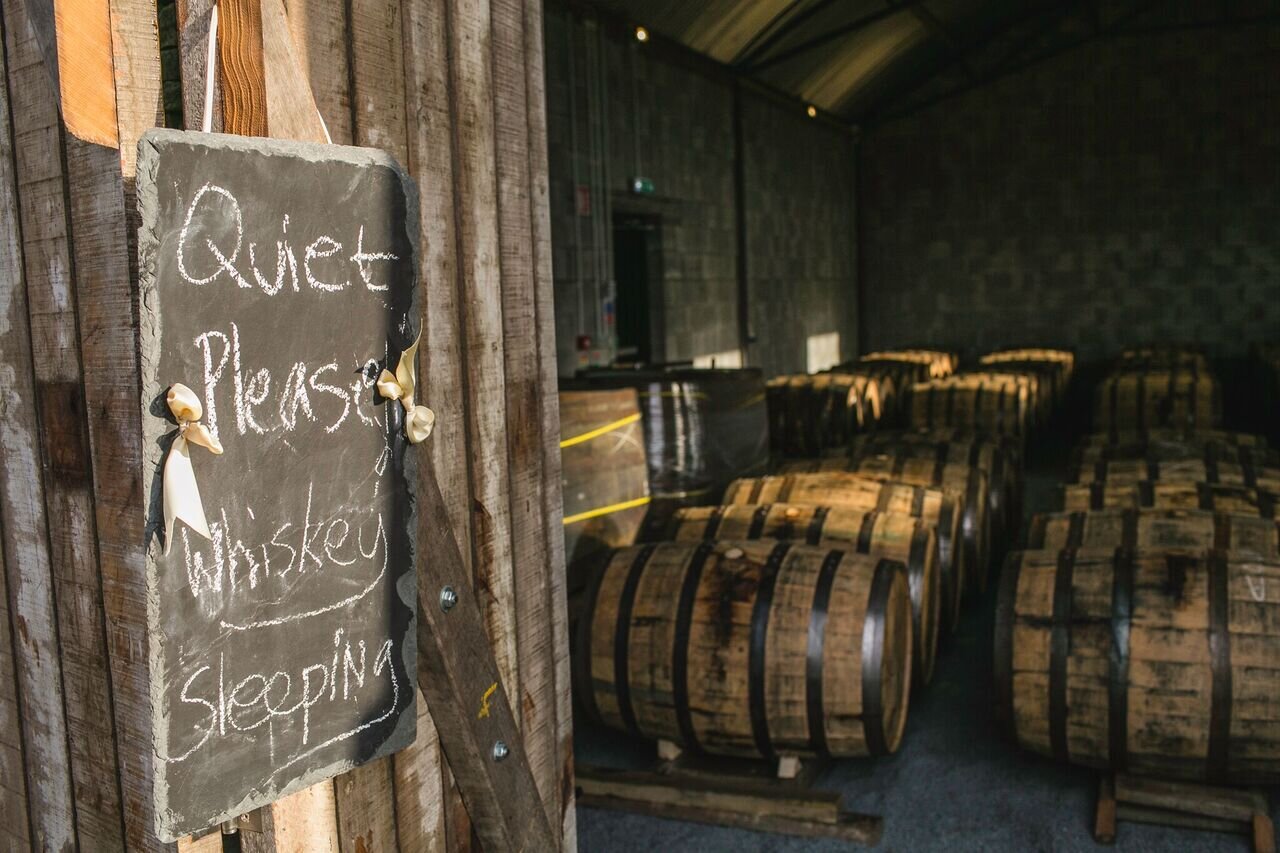 Quiet
Please
Whiskey
Sleeping